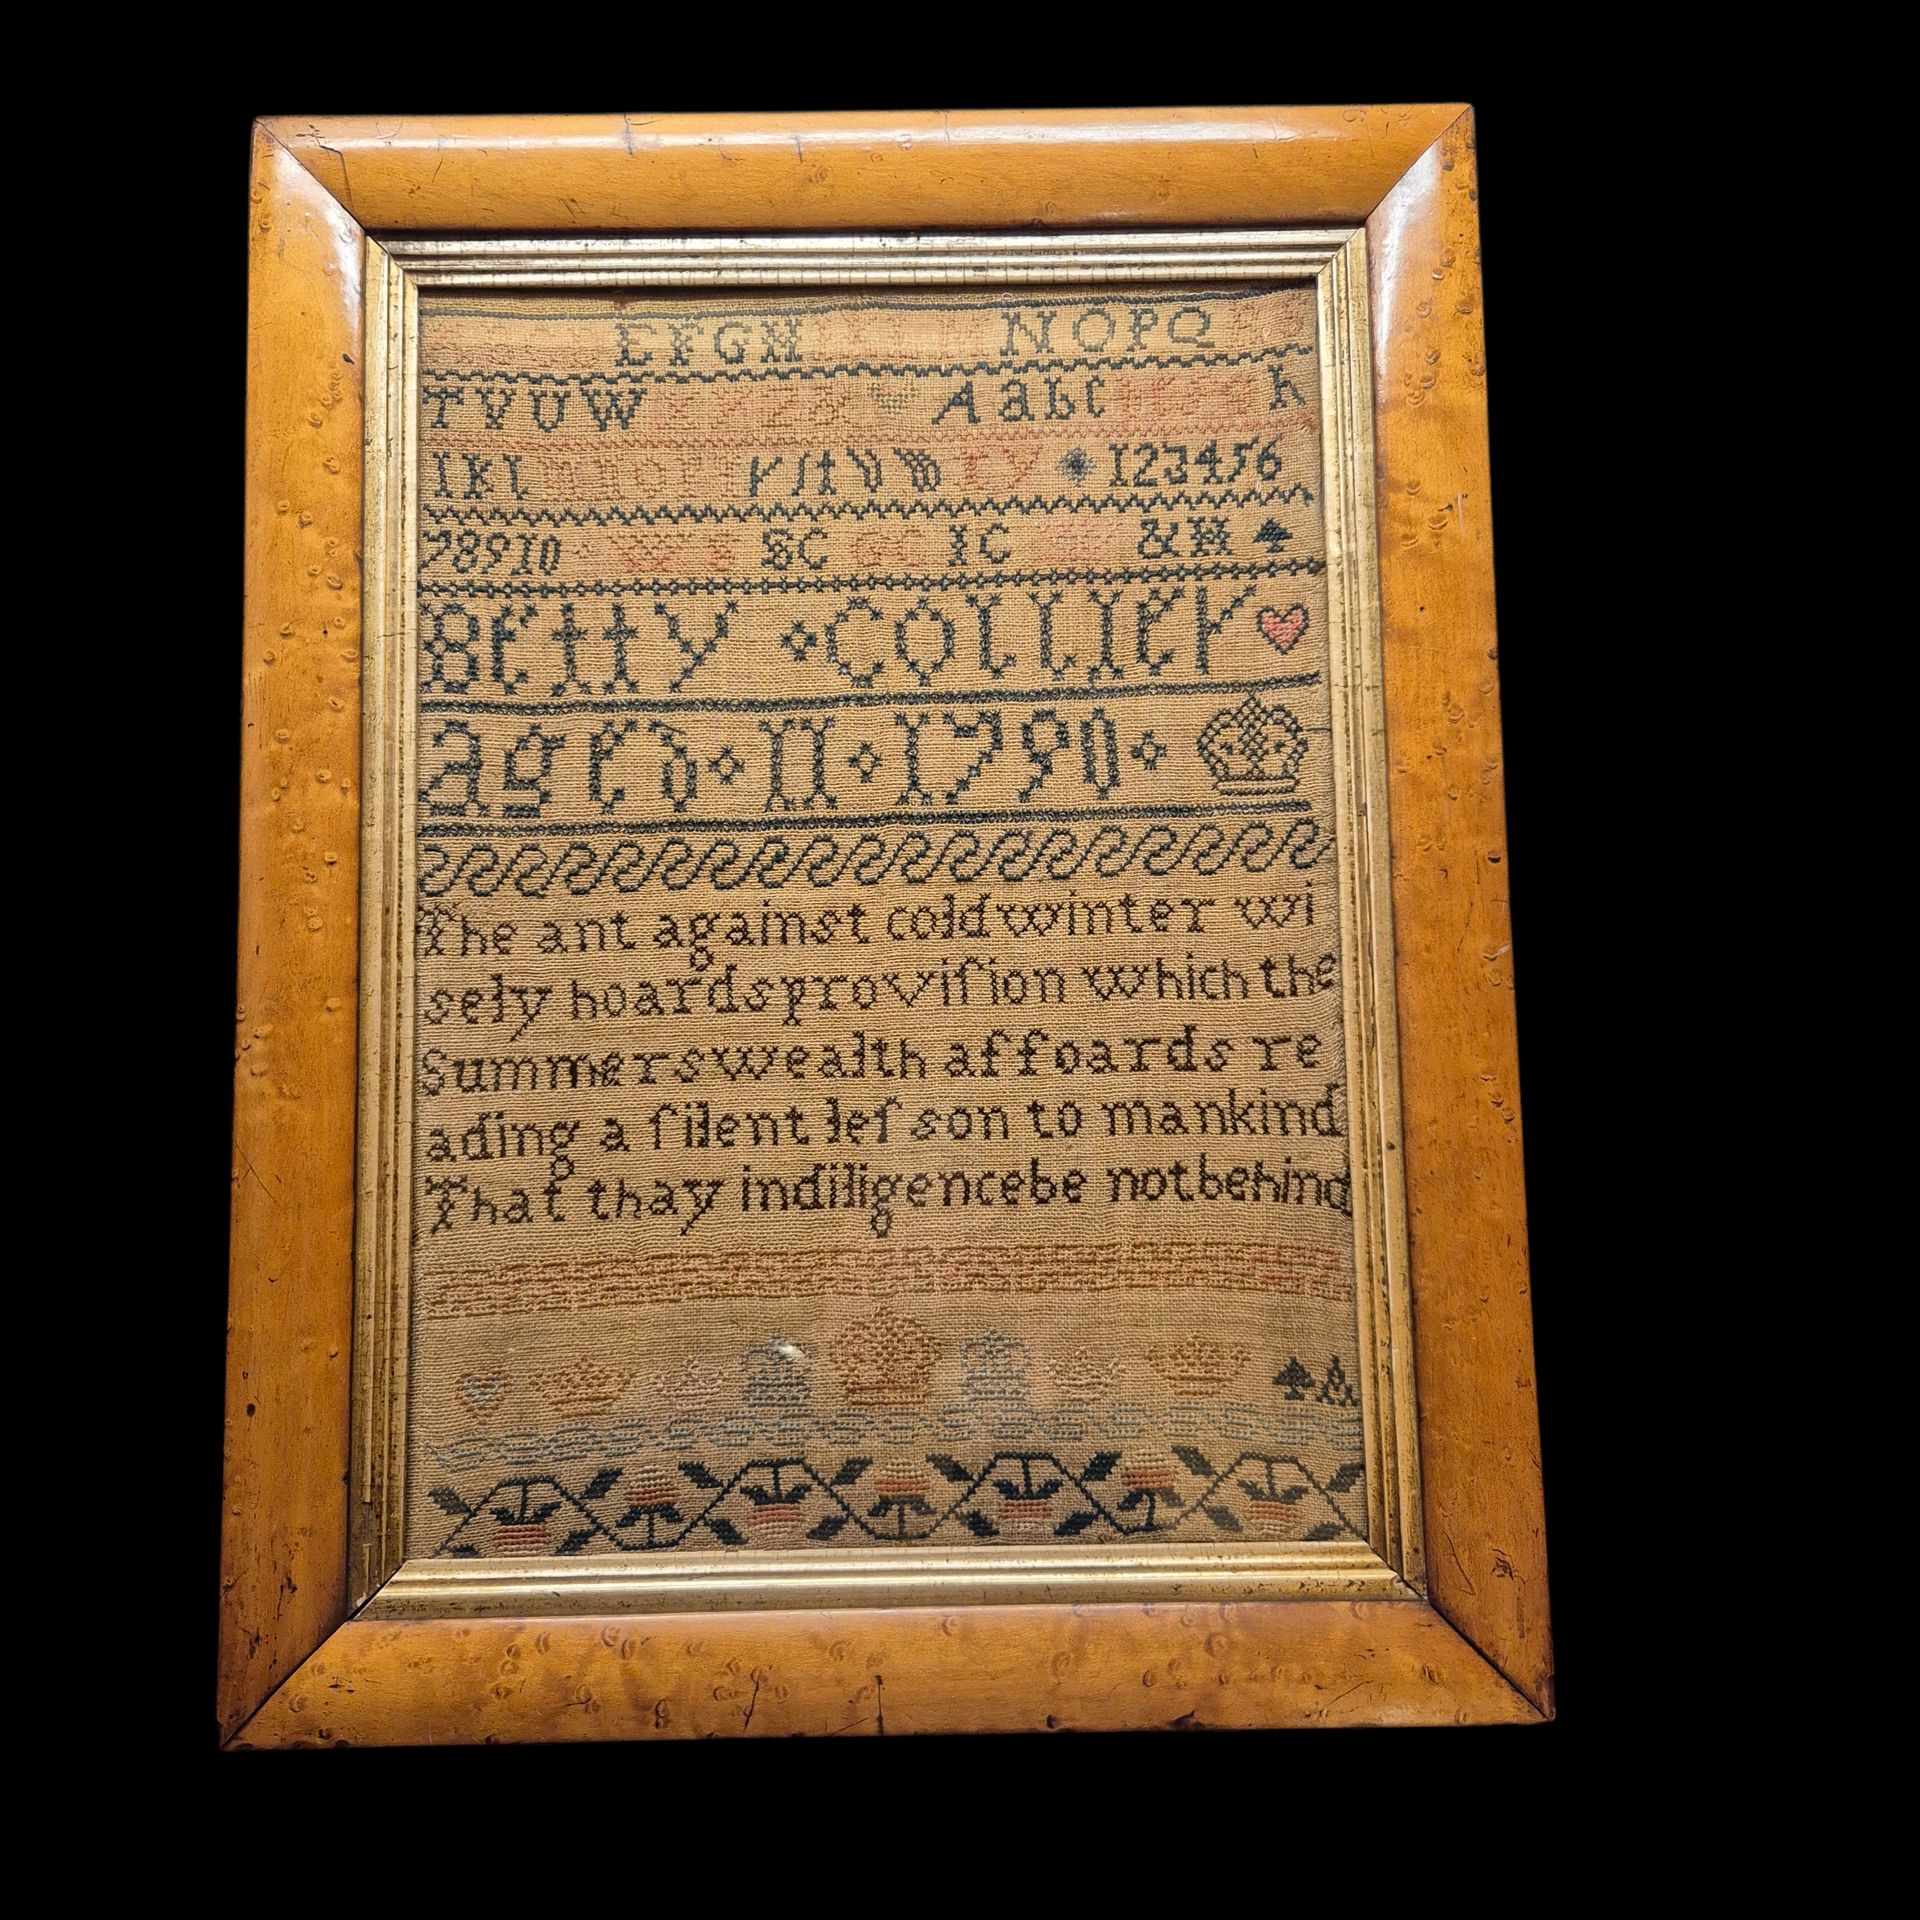 EFGH M NOPQ
TVUW Aabc h
IKl mnop rſtvw xy 123456
78910 SC GC IC &H
Betty Collier
Aged 11 1790
The ant against cold winter wi
sely hoards proviſion which the
Summers wealth affoards re
ading a ſilent leſson to mankind
That thay indiligence be not behind